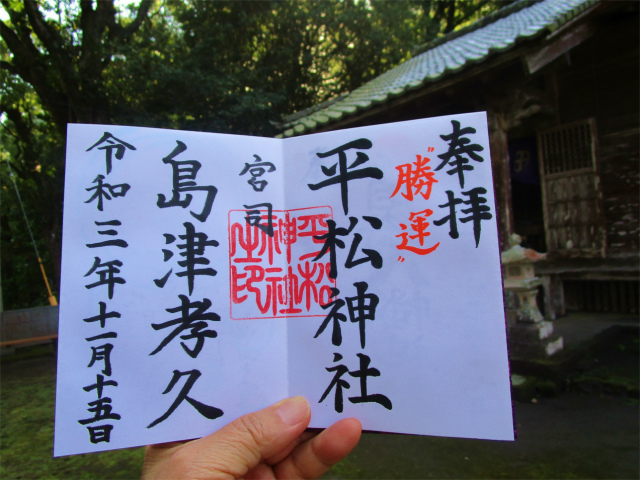 奉拝
"勝運"
平松神社
平松神社之印
宮司
島津孝久
令和三年十一月十五日